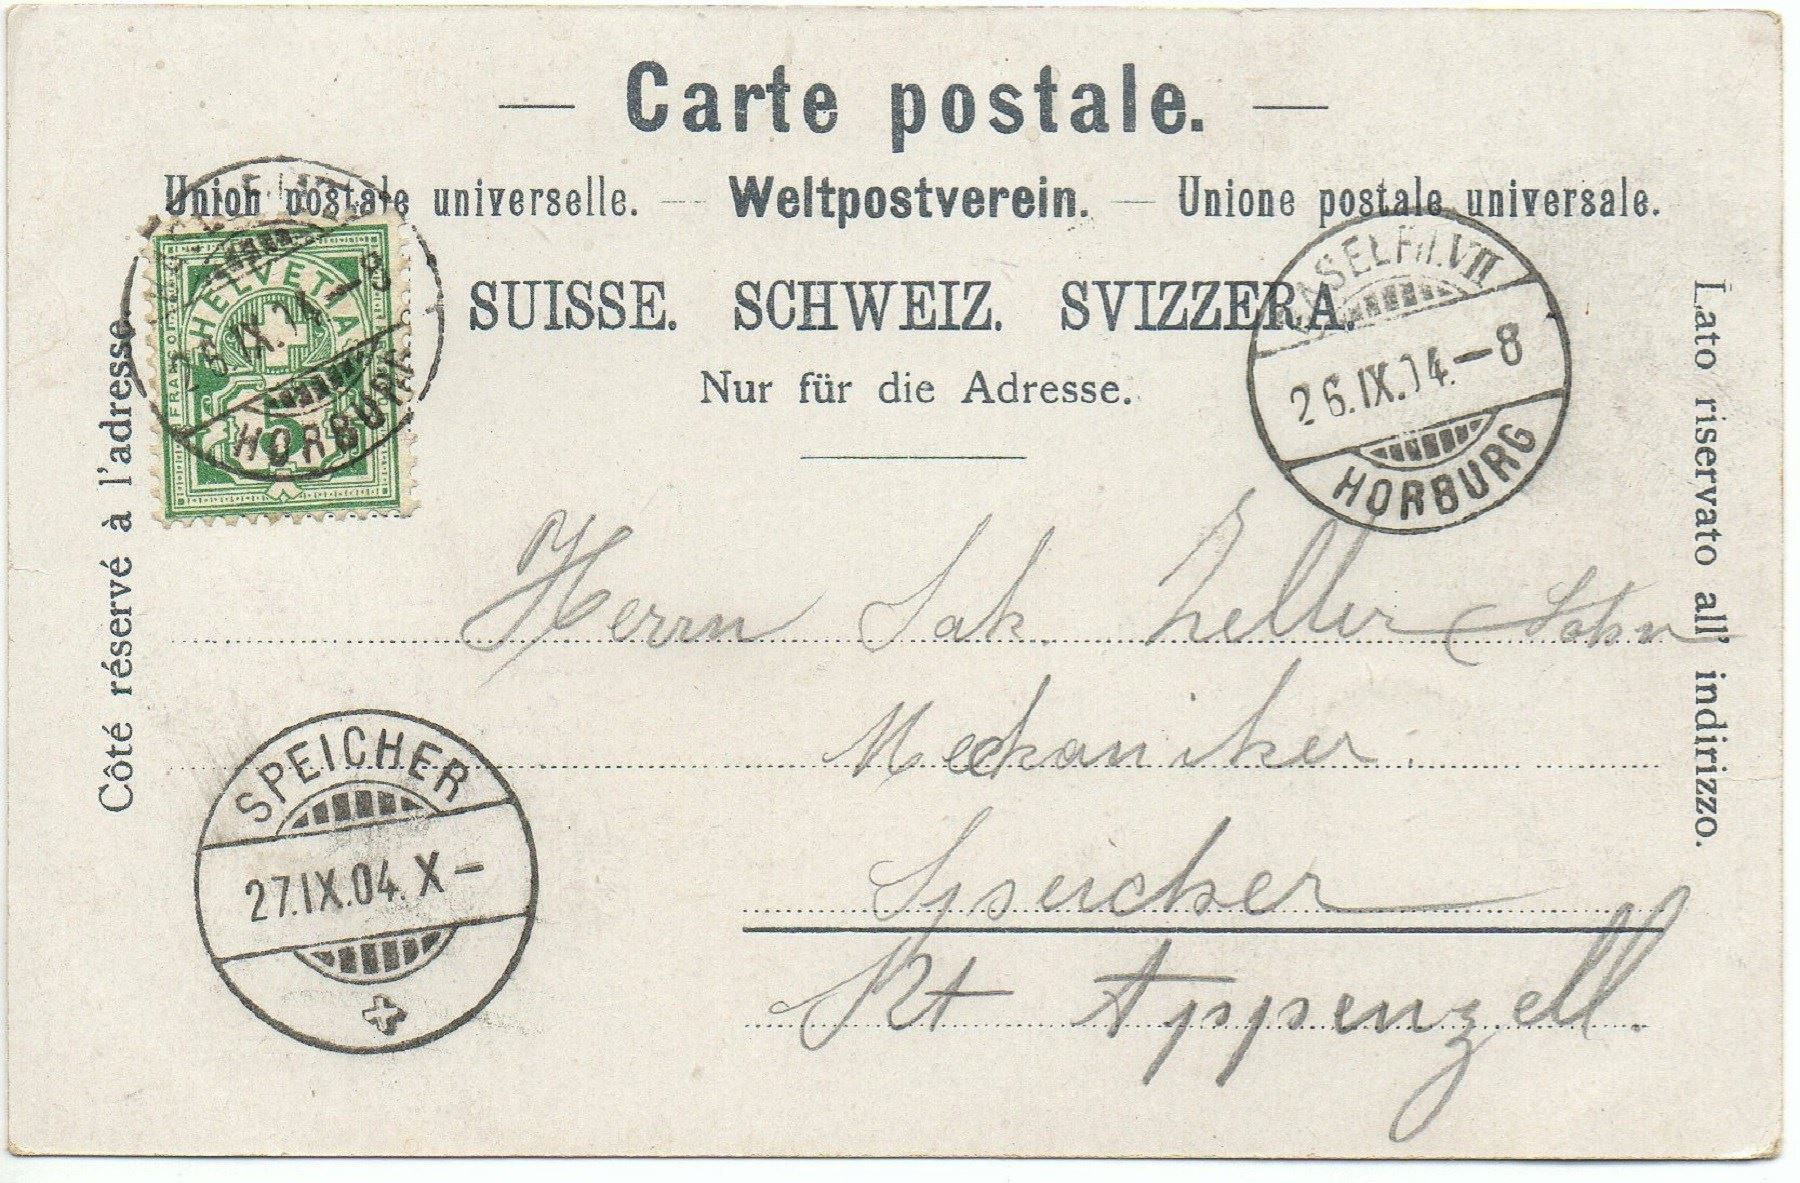 — Carte postale. —
Union postale universelle. — Weltpostverein. — Unione postale universale.
SUISSE. SCHWEIZ. SVIZZERA.
Nur für die Adresse.
Côté réservé à l'adresse.
Lato riservato all' indirizzo.
HELVETIA
FRANCO
5
26.IX.04.-8
HORBURG
BASEL FIL.VII
26.IX.04.-8
HORBURG
Herrn Jak. Zeller Sohn
Mechaniker.
Speicher
Kt Appenzell.
SPEICHER
27.IX.04.X-